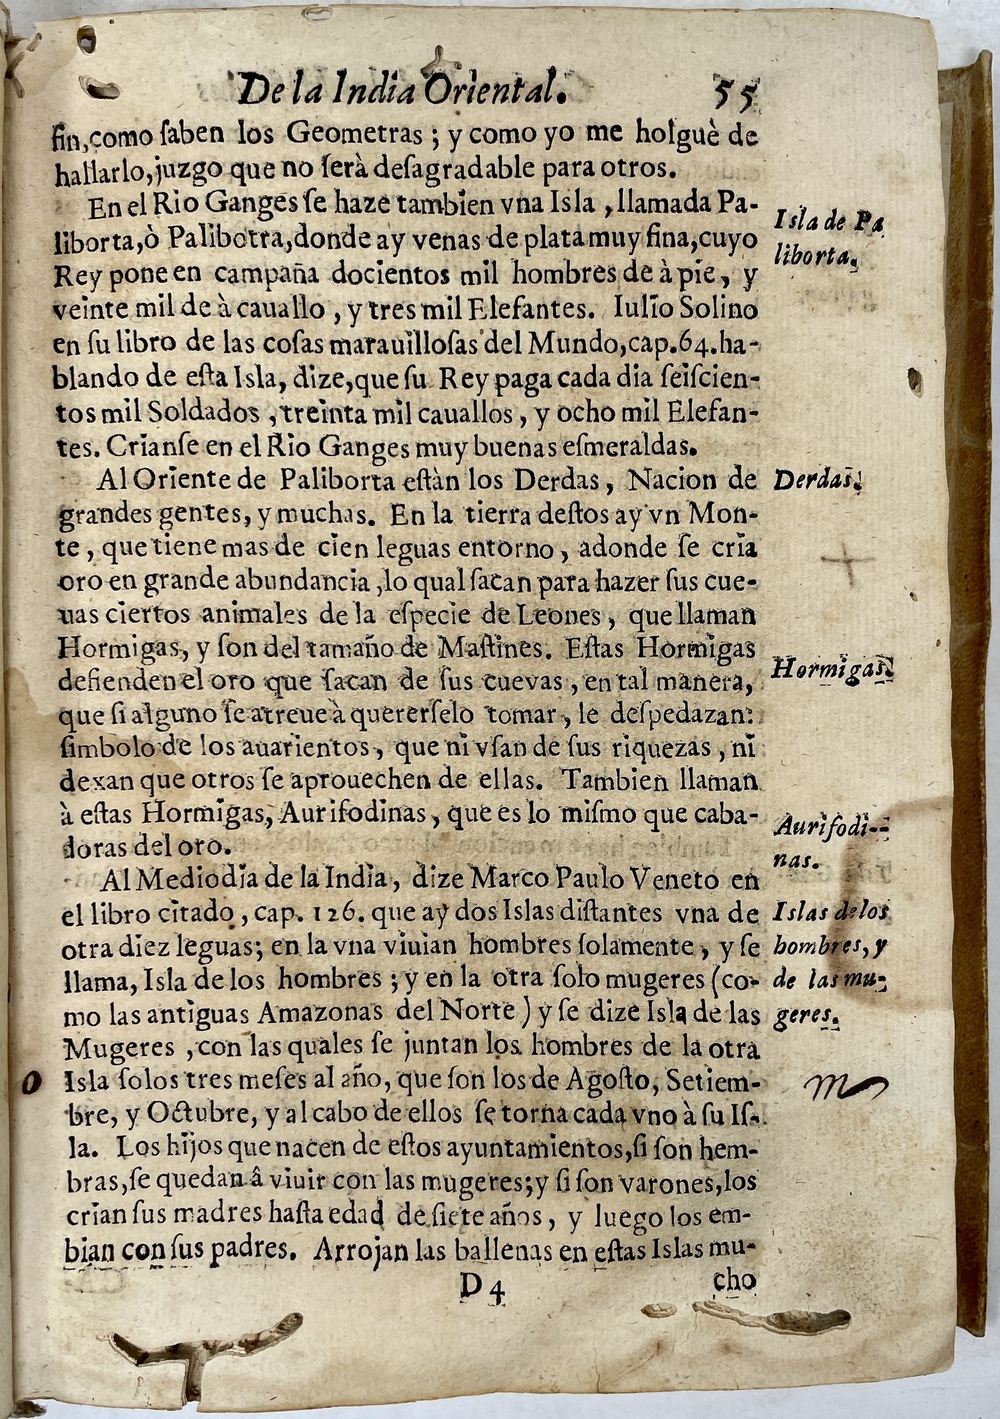 De la India Oriental. 55
fin, como ſaben los Geometras; y como yo me holguè de
hallarlo, juzgo que no ſerà deſagradable para otros.
En el Rio Ganges ſe haze tambien vna Isla, llamada Pa-
liborta, ò Palibotra, donde ay venas de plata muy fina, cuyo
Rey pone en campaña docientos mil hombres de à pie, y
veinte mil de à cauallo, y tres mil Elefantes. Iulio Solino
en ſu libro de las coſas marauilloſas del Mundo, cap. 64. ha-
blando de eſta Isla, dize, que ſu Rey paga cada dia ſeiſcien-
tos mil Soldados, treinta mil cauallos, y ocho mil Elefan-
tes. Crianſe en el Rio Ganges muy buenas eſmeraldas.
Isla de Pa
liborta.
Al Oriente de Paliborta eſtàn los Derdas, Nacion de
grandes gentes, y muchas. En la tierra deſtos ay vn Mon-
te, que tiene mas de cien leguas entorno, adonde ſe cria
oro en grande abundancia, lo qual ſacan para hazer ſus cue-
uas ciertos animales de la eſpecie de Leones, que llaman
Hormigas, y ſon del tamaño de Maſtines. Eſtas Hormigas
defienden el oro que ſacan de ſus cuevas, en tal manera,
que ſi alguno ſe atreue à quererſelo tomar, le deſpedazan:
ſimbolo de los auarientos, que ni vſan de ſus riquezas, ni
dexan que otros ſe aprouechen de ellas. Tambien llaman
à eſtas Hormigas, Aurifodinas, que es lo miſmo que caba-
doras del oro.
Derdas.
Hormigas.
Aurifodi-
nas.
Al Mediodia de la India, dize Marco Paulo Veneto en
el libro citado, cap. 126. que ay dos Islas diſtantes vna de
otra diez leguas; en la vna viuian hombres ſolamente, y ſe
llama, Isla de los hombres; y en la otra ſolo mugeres (co-
mo las antiguas Amazonas del Norte) y ſe dize Isla de las
Mugeres, con las quales ſe juntan los hombres de la otra
Isla ſolos tres meſes al año, que ſon los de Agoſto, Setiem-
bre, y Octubre, y al cabo de ellos ſe torna cada vno à ſu Iſ-
la. Los hijos que nacen de eſtos ayuntamientos, ſi ſon hem-
bras, ſe quedan â viuir con las mugeres; y ſi ſon varones, los
crian ſus madres haſta edad de ſiete años, y luego los em-
bian con ſus padres. Arrojan las ballenas en eſtas Islas mu-
Islas de los
hombres, y
de las mu-
geres.
D 4 cho